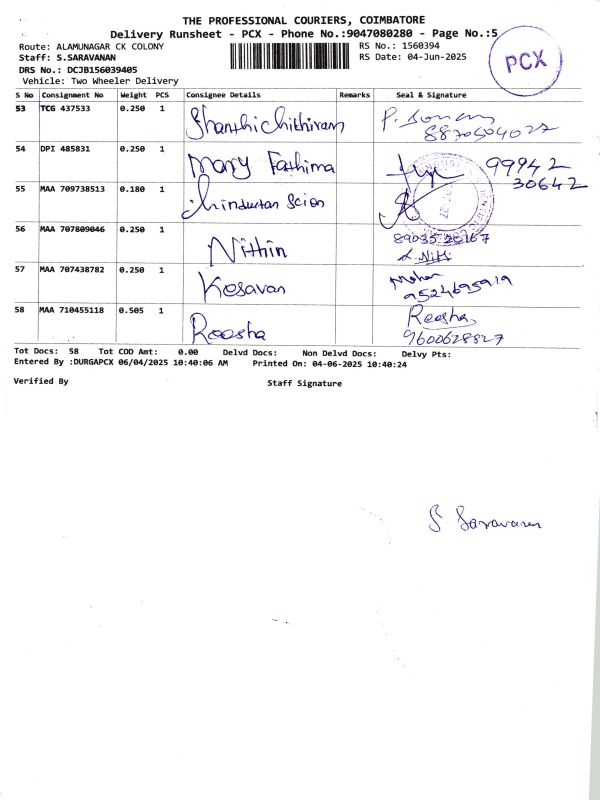 THE PROFESSIONAL COURIERS, COIMBATORE
Delivery Runsheet - PCX - Phone No.:9047080280 - Page No.:5
Route: ALAMUNAGAR CK COLONY
RS No.: 1560394
Staff: S.SARAVANAN
RS Date: 04-Jun-2025
DRS No.: DCJB156039405
Vehicle: Two Wheeler Delivery
PCX
S No Consignment No Weight PCS Consignee Details Remarks Seal & Signature
53 TCG 437533 0.250 1 Shanthi Chithiram
54 DPI 485831 0.250 1 Mary Fathima 99942
30642
55 MAA 709738513 0.180 1
56 MAA 707809046 0.250 1 Nithin
57 MAA 707438782 0.250 1 Kesavan Mohan
9524695919
58 MAA 710455118 0.505 1 Reesha Reesha
9600628827
Tot Docs: 58 Tot COD Amt: 0.00 Delvd Docs: Non Delvd Docs: Delvy Pts:
Entered By :DURGAPCX 06/04/2025 10:40:06 AM Printed On: 04-06-2025 10:40:24
Verified By Staff Signature
S Saravanan